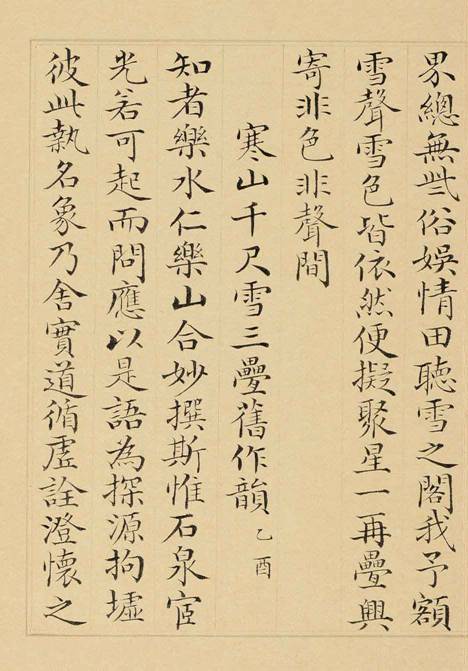 界總無些俗娛情田聽雪之閣我予額
雪聲雪色皆依然便擬聚星一再疊興
寄非色非聲間
寒山千尺雪三疊舊作韻 乙酉
知者樂水仁樂山合妙撰斯惟石泉宧
光若可起而問應以是語為探源拘墟
彼此執名象乃舍實道循虛詮澄懷之